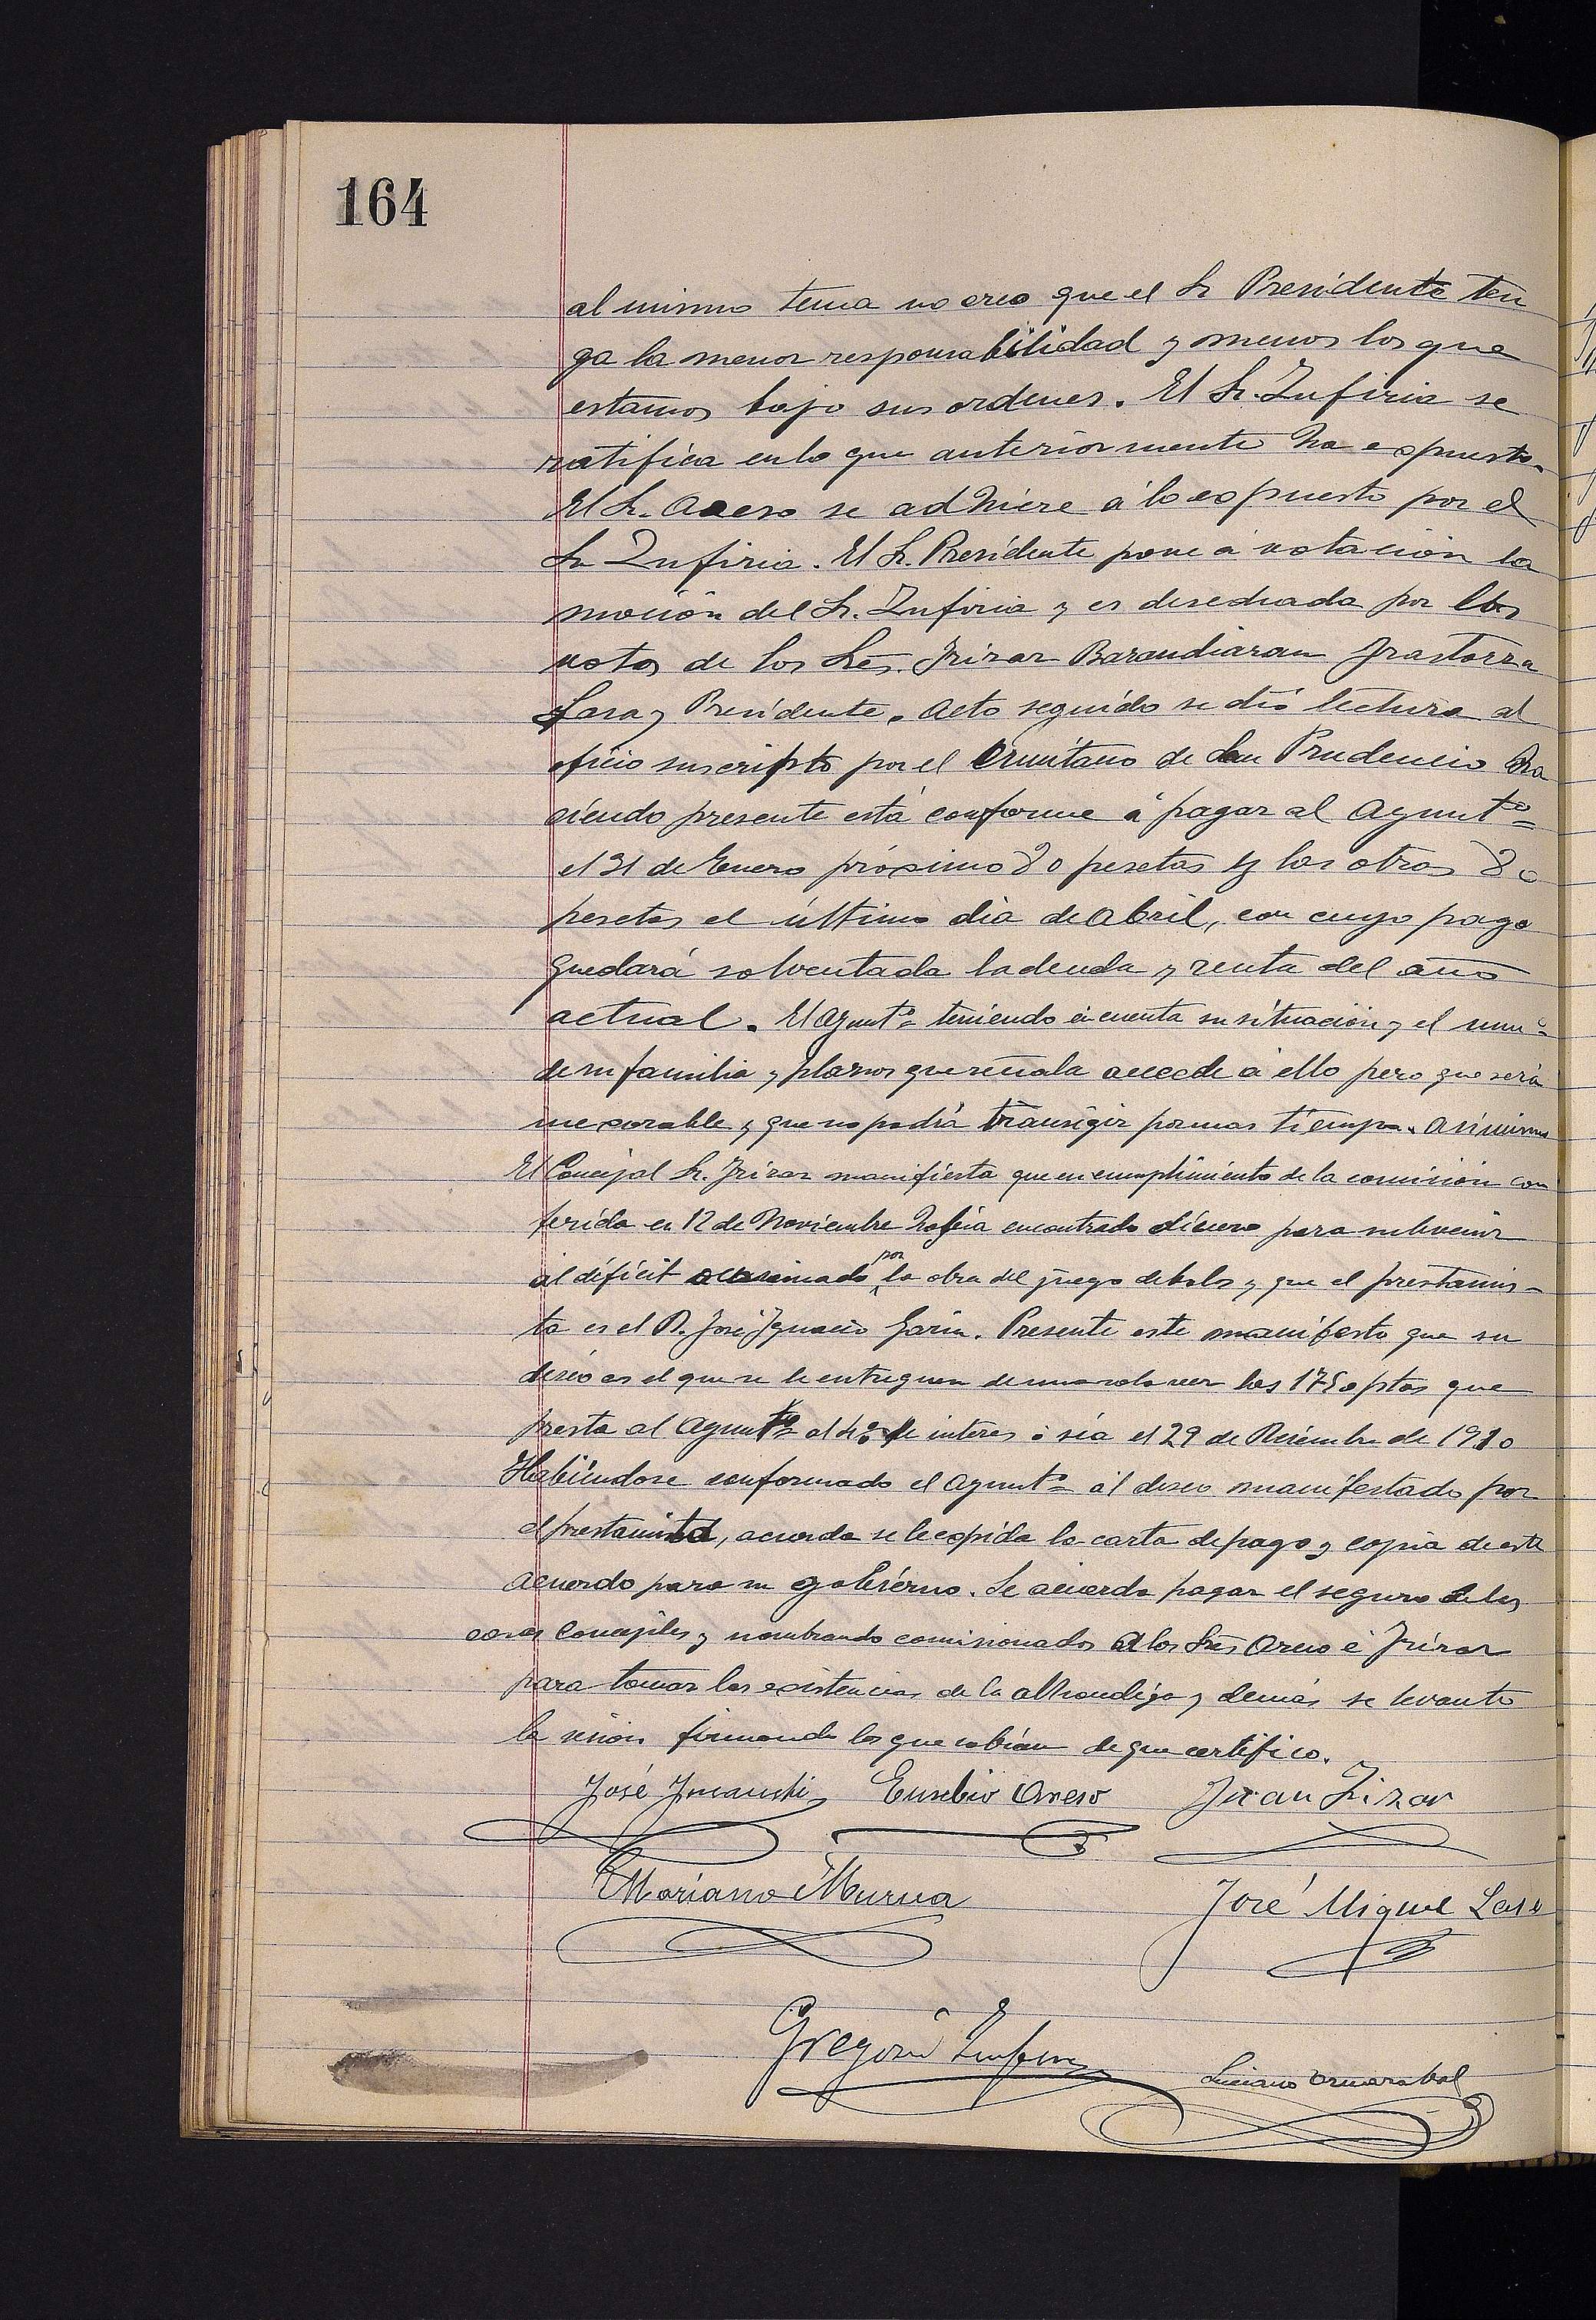 164
al mismo tema no creo que el Sr Presidente ten
ga la menor responsabilidad y menos los que
estamos bajo sus ordenes. El Sr. Zufiria se
ratifica en lo que anteriormente ha expuesto.
El Sr. Areso se adhiere á lo expuesto por el
Sr Zufiria. El Sr. Presidente pone á votación la
moción del Sr. Zufiria y es desechada por los
votos de los Sres. Irizar Barandiaran Irastorza
Lasa y Presidente. Acto seguido se dió lectura al
oficio suscripto por el Ermitano de San Prudencio ha
ciendo presente está conforme á pagar al Ayuntº
el 31 de Enero próximo 80 pesetas y las otras 80
pesetas el último dia de Abril, con cuyo pago
quedará solventada la deuda y renta del año
actual. El Ayuntº teniendo en cuenta su situación y el numº
de su familia y plazos que señala accede á ello pero que será
inexorable y que no podrá transigir por mas tiempo. Asimismo
El Concejal Sr. Irizar manifiesta que en cumplimiento de la comisión con
ferida en 12 de Noviembre habia encontrado dinero para subvenir
al déficit ocasionado por la obra del juego de bolos y que el prestamis-
ta es el D. José Ignacio Garin. Presente este manifesto que su
deseo es el que se le entreguen de una sola vez las 1750 ptas que
presta al Ayuntº al 4% de interes ó sea el 29 de Diciembre de 1910
Habiendose conformado el Ayuntº al deseo manifestado por
el prestamista, acuerda se le expida la carta de pago y copia de este
acuerdo para su gobierno. Se acuerda pagar el seguro de las
casas Concejiles y nombrando comisionados a los Sres Areso é Irizar
para tomar las existencias de la alhondiga y demás se levanto
la sesion firmando los que sabian de que certifico.
José Eusebio Areso Juan Irizar
Mariano Murua José Miguel Lasa
Gregorio Zufiria Luciano Ormazabal